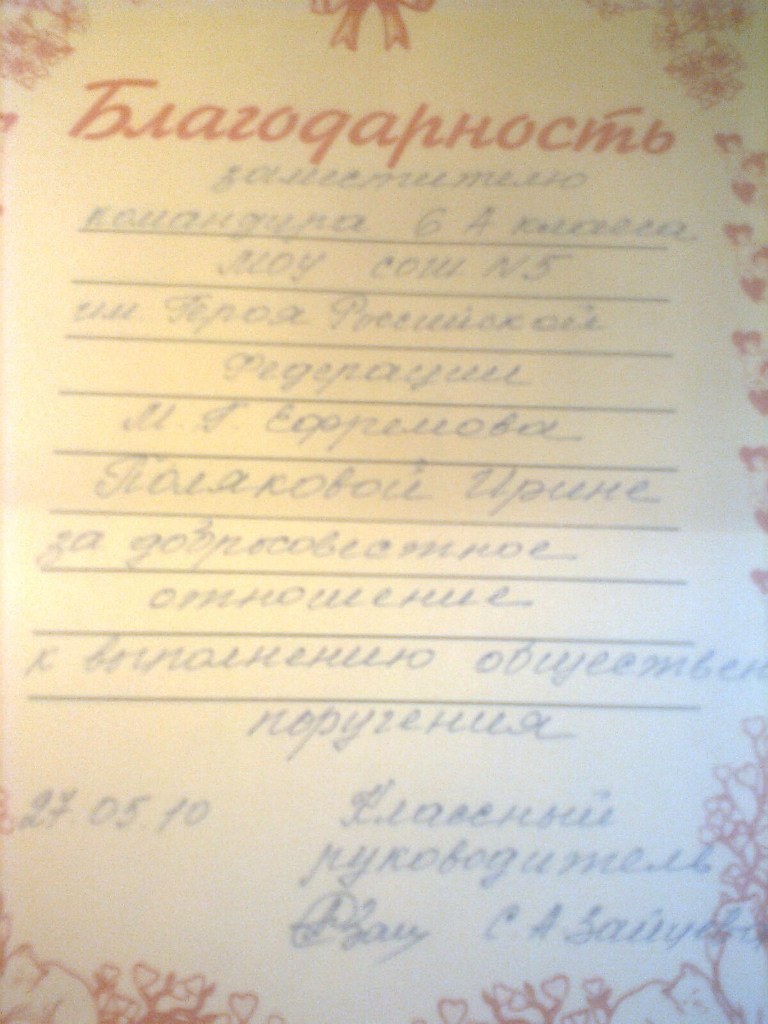 Благодарность
заместителю
командира 6 А класса
МОУ сош N5
им. Героя Российской
Федерации
М. Г. Ефремова
Поляковой Ирине
за добросовестное
отношение
к выполнению обществен
поручения
27.05.10 Классный
руководитель
С А Зайцева